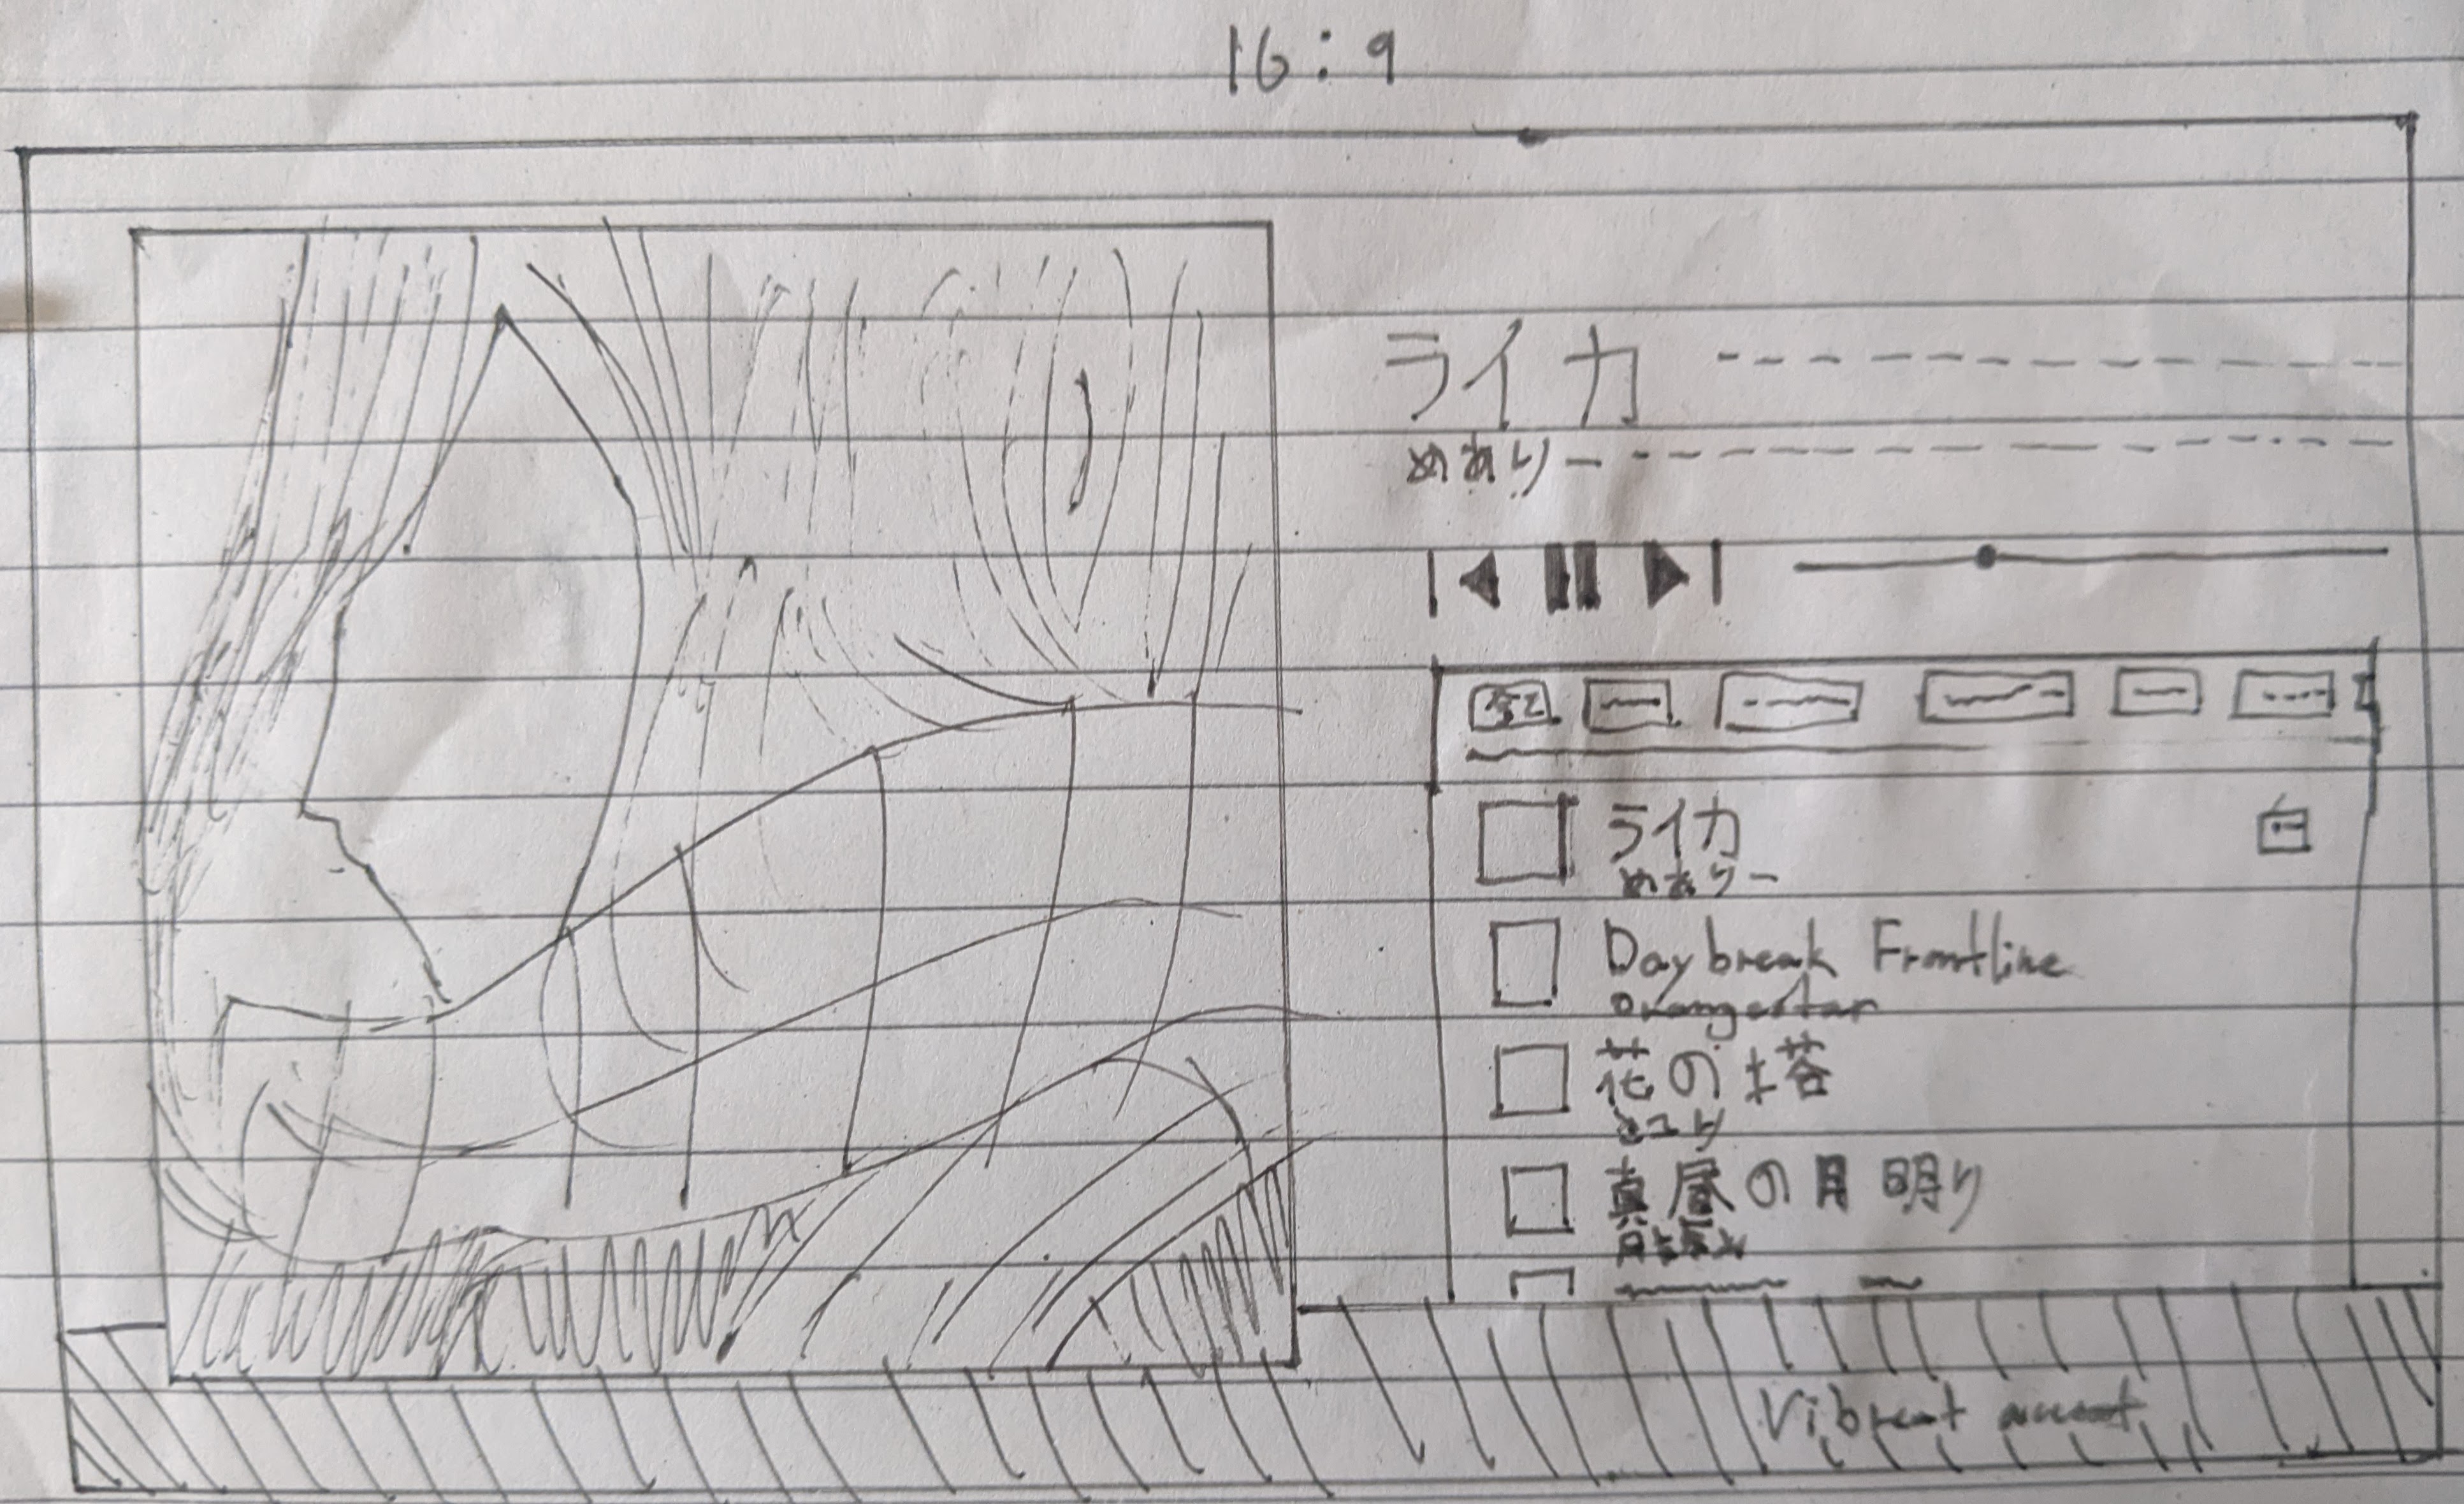 16:9
ライカ
めありー
ライカ
めありー
Daybreak Frontline
orangestar
花の塔
さユり
真昼の月明り
Vibrant accent